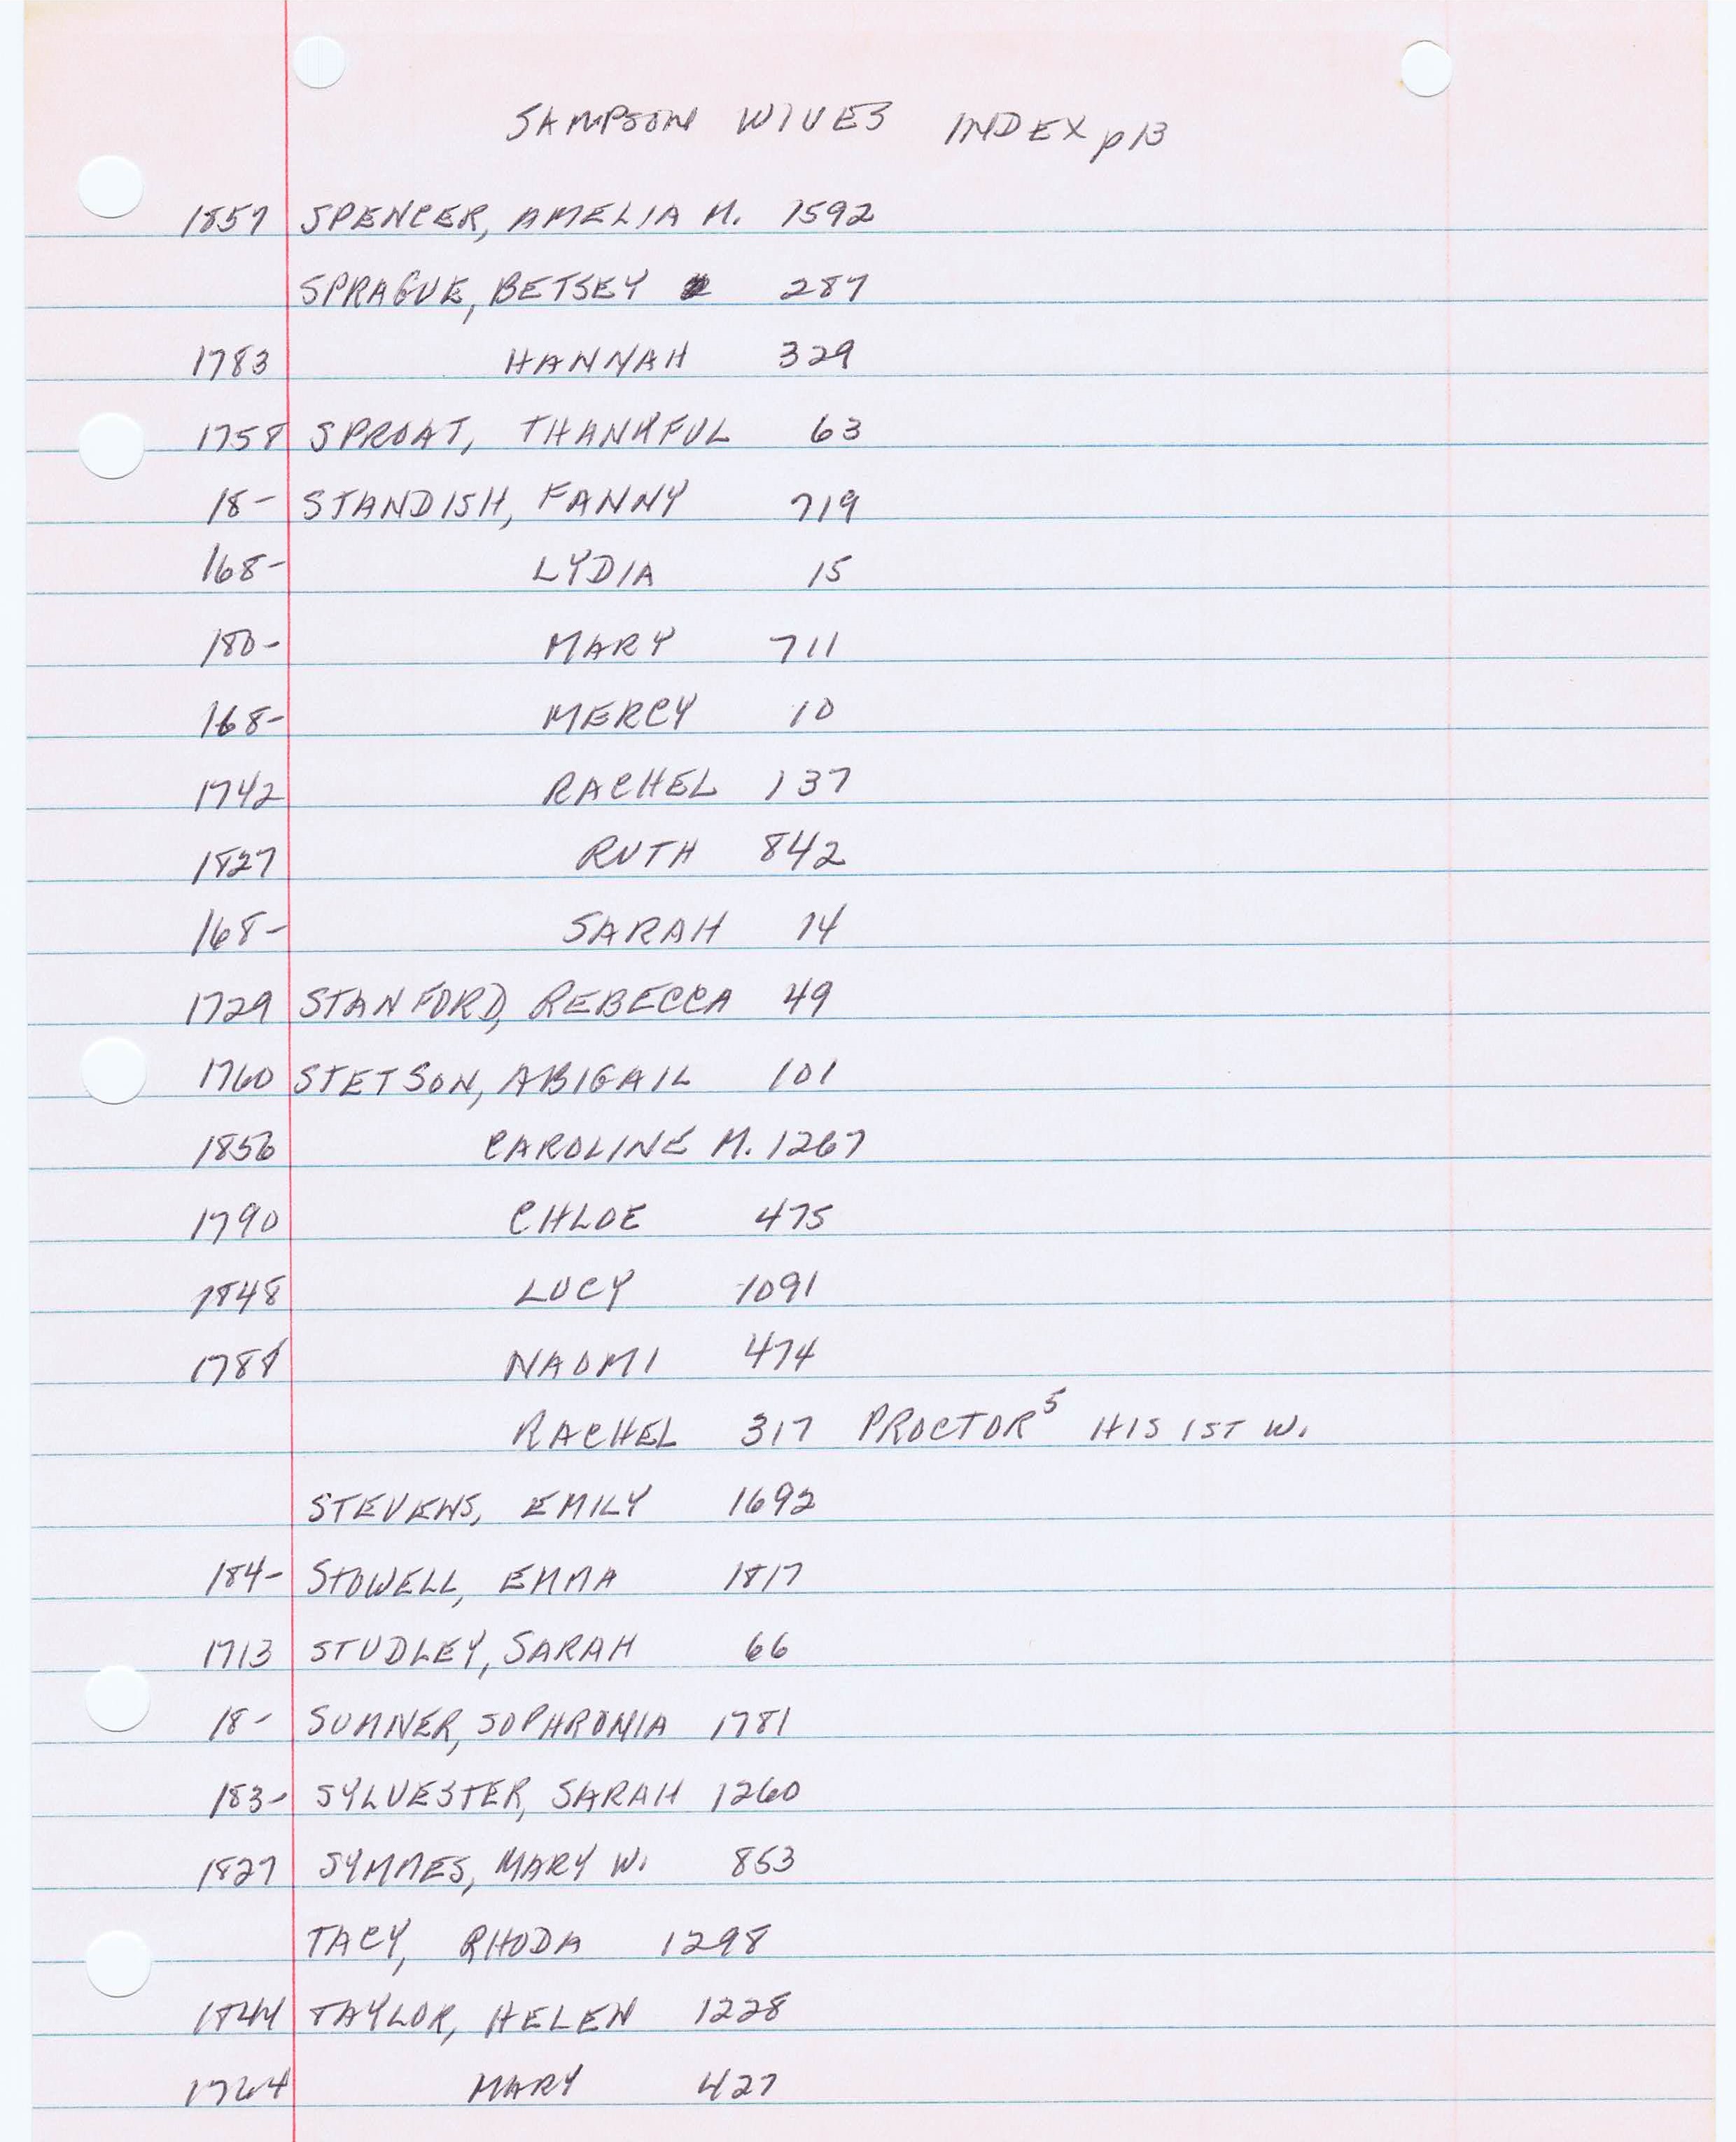 SAMPSON WIVES INDEX p 13
1857 SPENCER, AMELIA M. 1592
SPRAGUE, BETSEY 287
1783 HANNAH 329
1758 SPROAT, THANKFUL 63
18- STANDISH, FANNY 719
168- LYDIA 15
180- MARY 711
168- MERCY 10
1742 RACHEL 137
1827 RUTH 842
168- SARAH 14
1729 STANFORD, REBECCA 49
1760 STETSON, ABIGAIL 101
1856 CAROLINE M. 1267
1790 CHLOE 475
1848 LUCY 1091
1788 NAOMI 474
RACHEL 317 PROCTOR⁵ HIS 1ST W.
STEVENS, EMILY 1692
184- STOWELL, EMMA 1817
1713 STUDLEY, SARAH 66
18- SUMNER, SOPHRONIA 1781
183- SYLVESTER, SARAH 1260
1827 SYMMES, MARY W. 853
TACY, RHODA 1298
1844 TAYLOR, HELEN 1228
1764 MARY 427